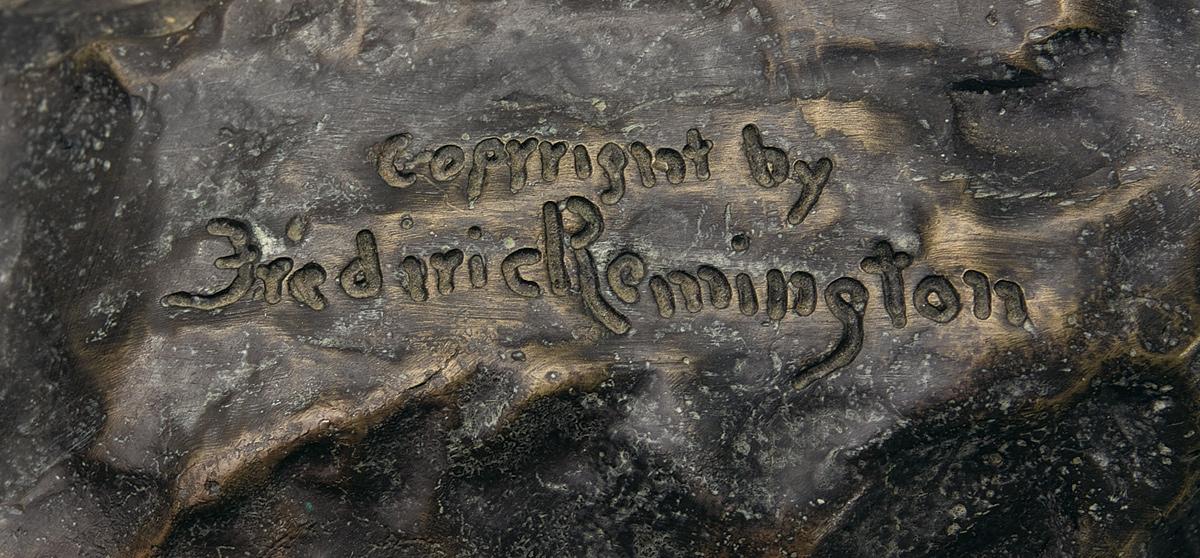 Copyright by
Frederic Remington